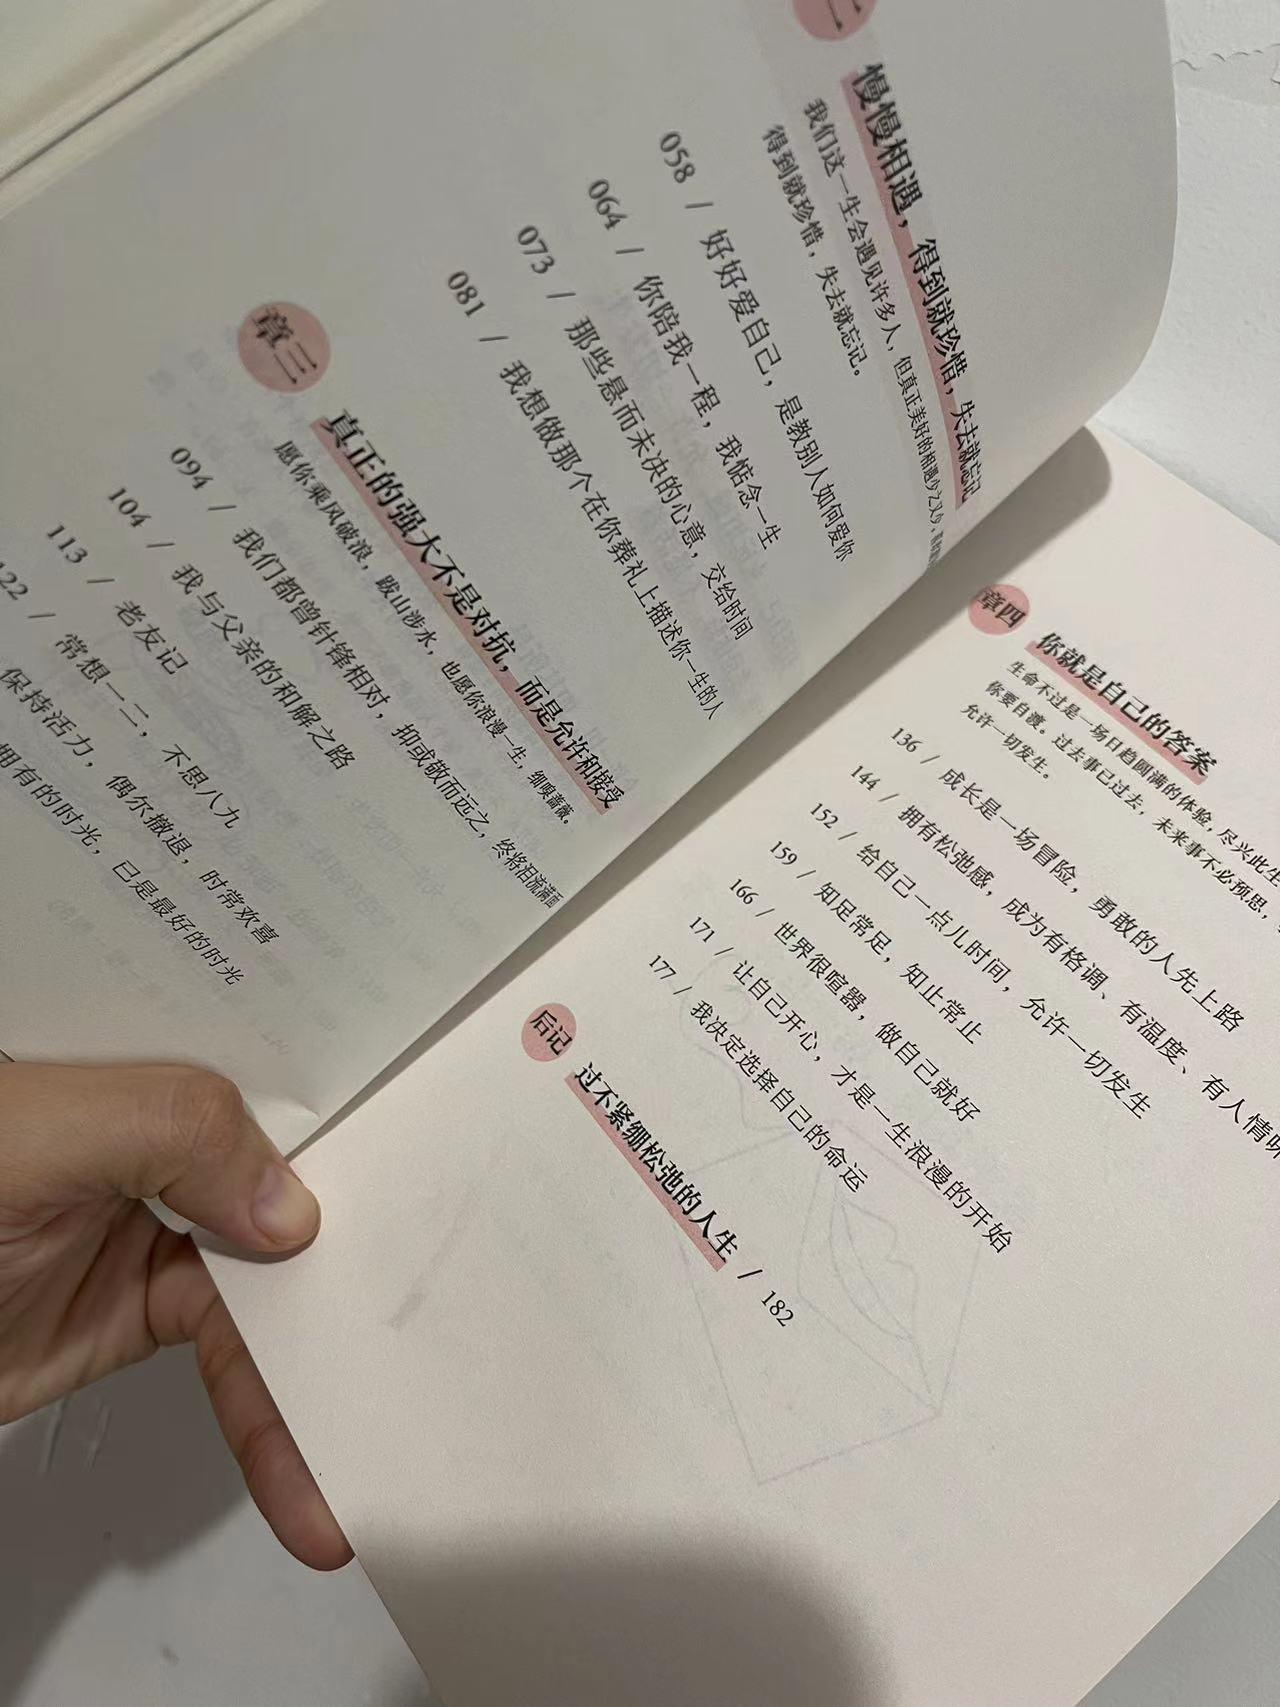 二
慢慢相遇，得到就珍惜，失去就忘记
我们这一生会遇见许多人，但真正美好的相遇少之又少，
得到就珍惜，失去就忘记。
058 / 好好爱自己，是教别人如何爱你
064 / 你陪我一程，我惦念一生
073 / 那些悬而未决的心意，交给时间
081 / 我想做那个在你葬礼上描述你一生的人
章三
真正的强大不是对抗，而是允许和接受
愿你乘风破浪，跋山涉水，也愿你浪漫一生，细嗅蔷薇。
094 / 我们都曾针锋相对，抑或敬而远之，终将泪流满面
104 / 我与父亲的和解之路
113 / 老友记
122 / 常想一二，不思八九
保持活力，偶尔撤退，时常欢喜
拥有的时光，已是最好的时光
章四
你就是自己的答案
生命不过是一场日趋圆满的体验，尽兴此生
你要自渡。过去事已过去，未来事不必预思，
允许一切发生。
136 / 成长是一场冒险，勇敢的人先上路
144 / 拥有松弛感，成为有格调、有温度、有人情味
152 / 给自己一点儿时间，允许一切发生
159 / 知足常足，知止常止
166 / 世界很喧嚣，做自己就好
171 / 让自己开心，才是一生浪漫的开始
177 / 我决定选择自己的命运
后记
过不紧绷松弛的人生 / 182